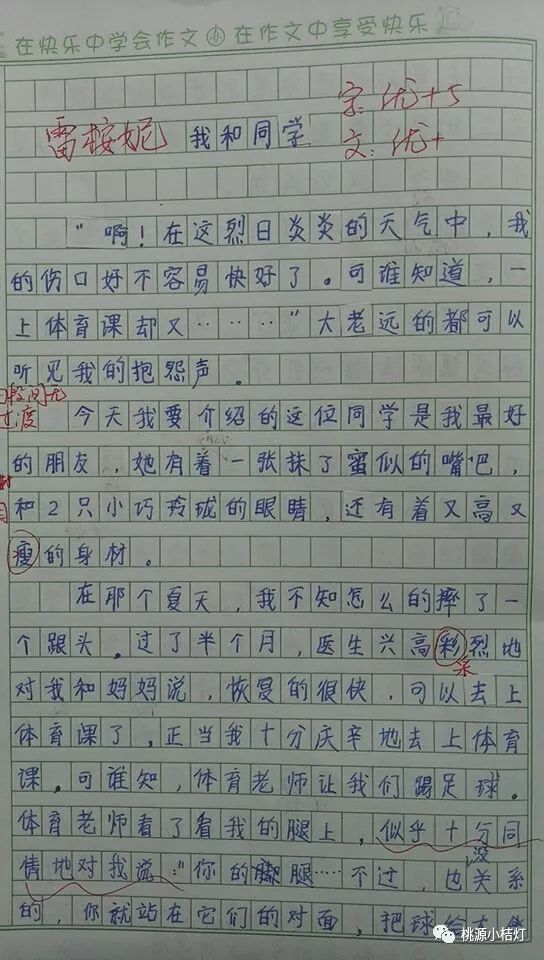 在快乐中学会作文 在作文中享受快乐
字:优+5
雷桉妮 我和同学
文:优+
"啊!在这烈日炎炎的天气中,我
的伤口好不容易快好了。可谁知道,一
上体育课却又……"大老远的都可以
听见我的抱怨声。
段间无
过渡
今天我要介绍的这位同学是我最好
的朋友,她有着一张抹了蜜似的嘴吧,
和2只小巧玲珑的眼睛,还有着又高又
瘦的身材。
在那个夏天,我不知怎么的摔了一
个跟头。过了半个月,医生兴高彩烈地
采
对我和妈妈说,恢复的很快,可以去上
体育课了,正当我十分庆辛地去上体育
课。可谁知,体育老师让我们踢足球。
体育老师看了看我的腿上,似乎十分同
情地对我说:"你的脚腿……不过,也没关系
的,你就站在它们的对面,把球给
桃源小桔灯